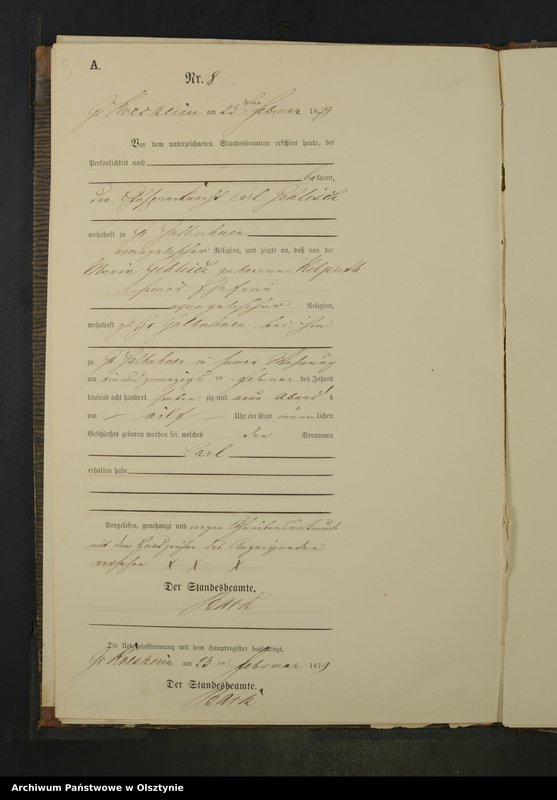 A.
Nr. 8
am 23ten Februar 1879
Vor dem unterzeichneten Standesbeamten erschien heute, der
Persönlichkeit nach
bekannt,
der Carl
wohnhaft zu Gr
evangelischer Religion, und zeigte an, daß von der
Maria geborenen
seiner Ehefrau
evangelischer Religion,
wohnhaft zu Gr bei ihm
zu Gr in seiner Wohnung
am ein und zwanzigsten Februar des Jahres
tausend acht hundert sieben zig und neun Abends
um elf Uhr ein Kind männlichen
Geschlechts geboren worden sei, welches den Vornamen
Carl
erhalten habe
Vorgelesen, genehmigt und wegen Schreibensunkunde
mit dem Handzeichen des Anzeigenden
versehen X X X
Der Standesbeamte.
Die Uebereinstimmung mit dem Hauptregister beglaubigt.
am 23 ten Februar 1879
Der Standesbeamte.
Archiwum Państwowe w Olsztynie